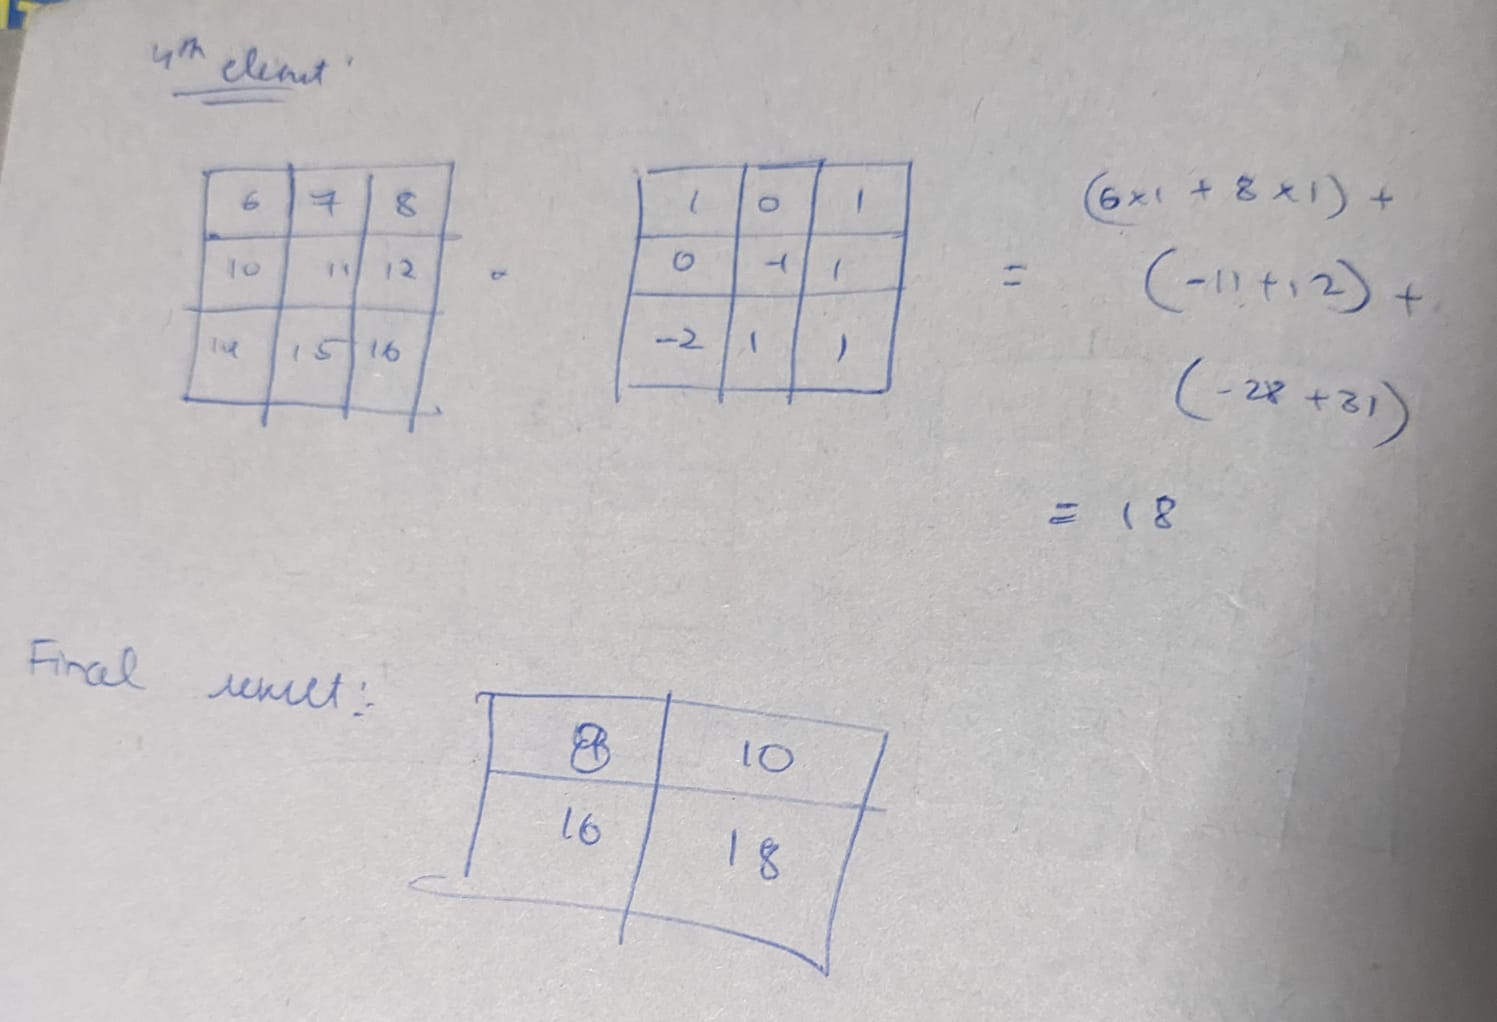 4th element
6 7 8
10 11 12
14 15 16
.
1 0 1
0 -1 1
-2 1 1
= (6x1 + 8x1) +
(-11+12) +
(-28 +31)
= 18
Final result:
8 10
16 18